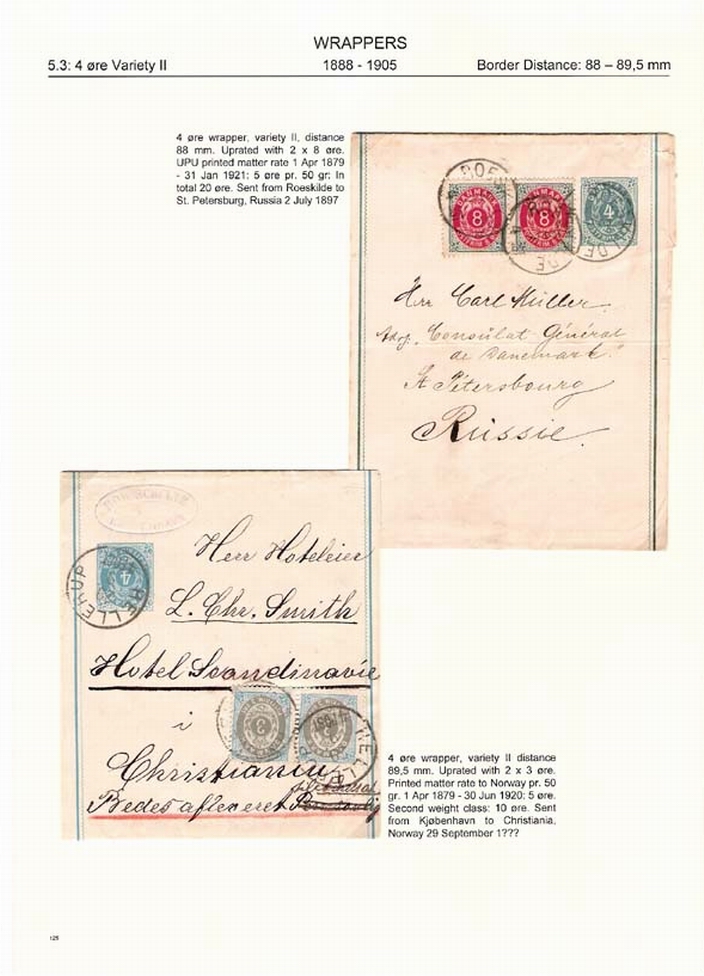 WRAPPERS
5.3: 4 øre Variety II 1888 - 1905 Border Distance: 88 – 89,5 mm
4 øre wrapper, variety II, distance
88 mm. Uprated with 2 x 8 øre.
UPU printed matter rate 1 Apr 1879
- 31 Jan 1921: 5 øre pr. 50 gr: In
total 20 øre. Sent from Roeskilde to
St. Petersburg, Russia 2 July 1897
DANMARK
8
8
4
Herr Carl Müller
Consulat Général
de Danemark
St Pétersbourg
Russie
4
HELLERUP
Herr Hotelejer
L. Chr. Smith
Hotel Scandinavie
i
3
3
HELL
Christiania
Bedes afleveret
4 øre wrapper, variety II distance
89,5 mm. Uprated with 2 x 3 øre.
Printed matter rate to Norway pr. 50
gr. 1 Apr 1879 - 30 Jun 1920: 5 øre.
Second weight class: 10 øre. Sent
from Kjøbenhavn to Christiania,
Norway 29 September 1???
125